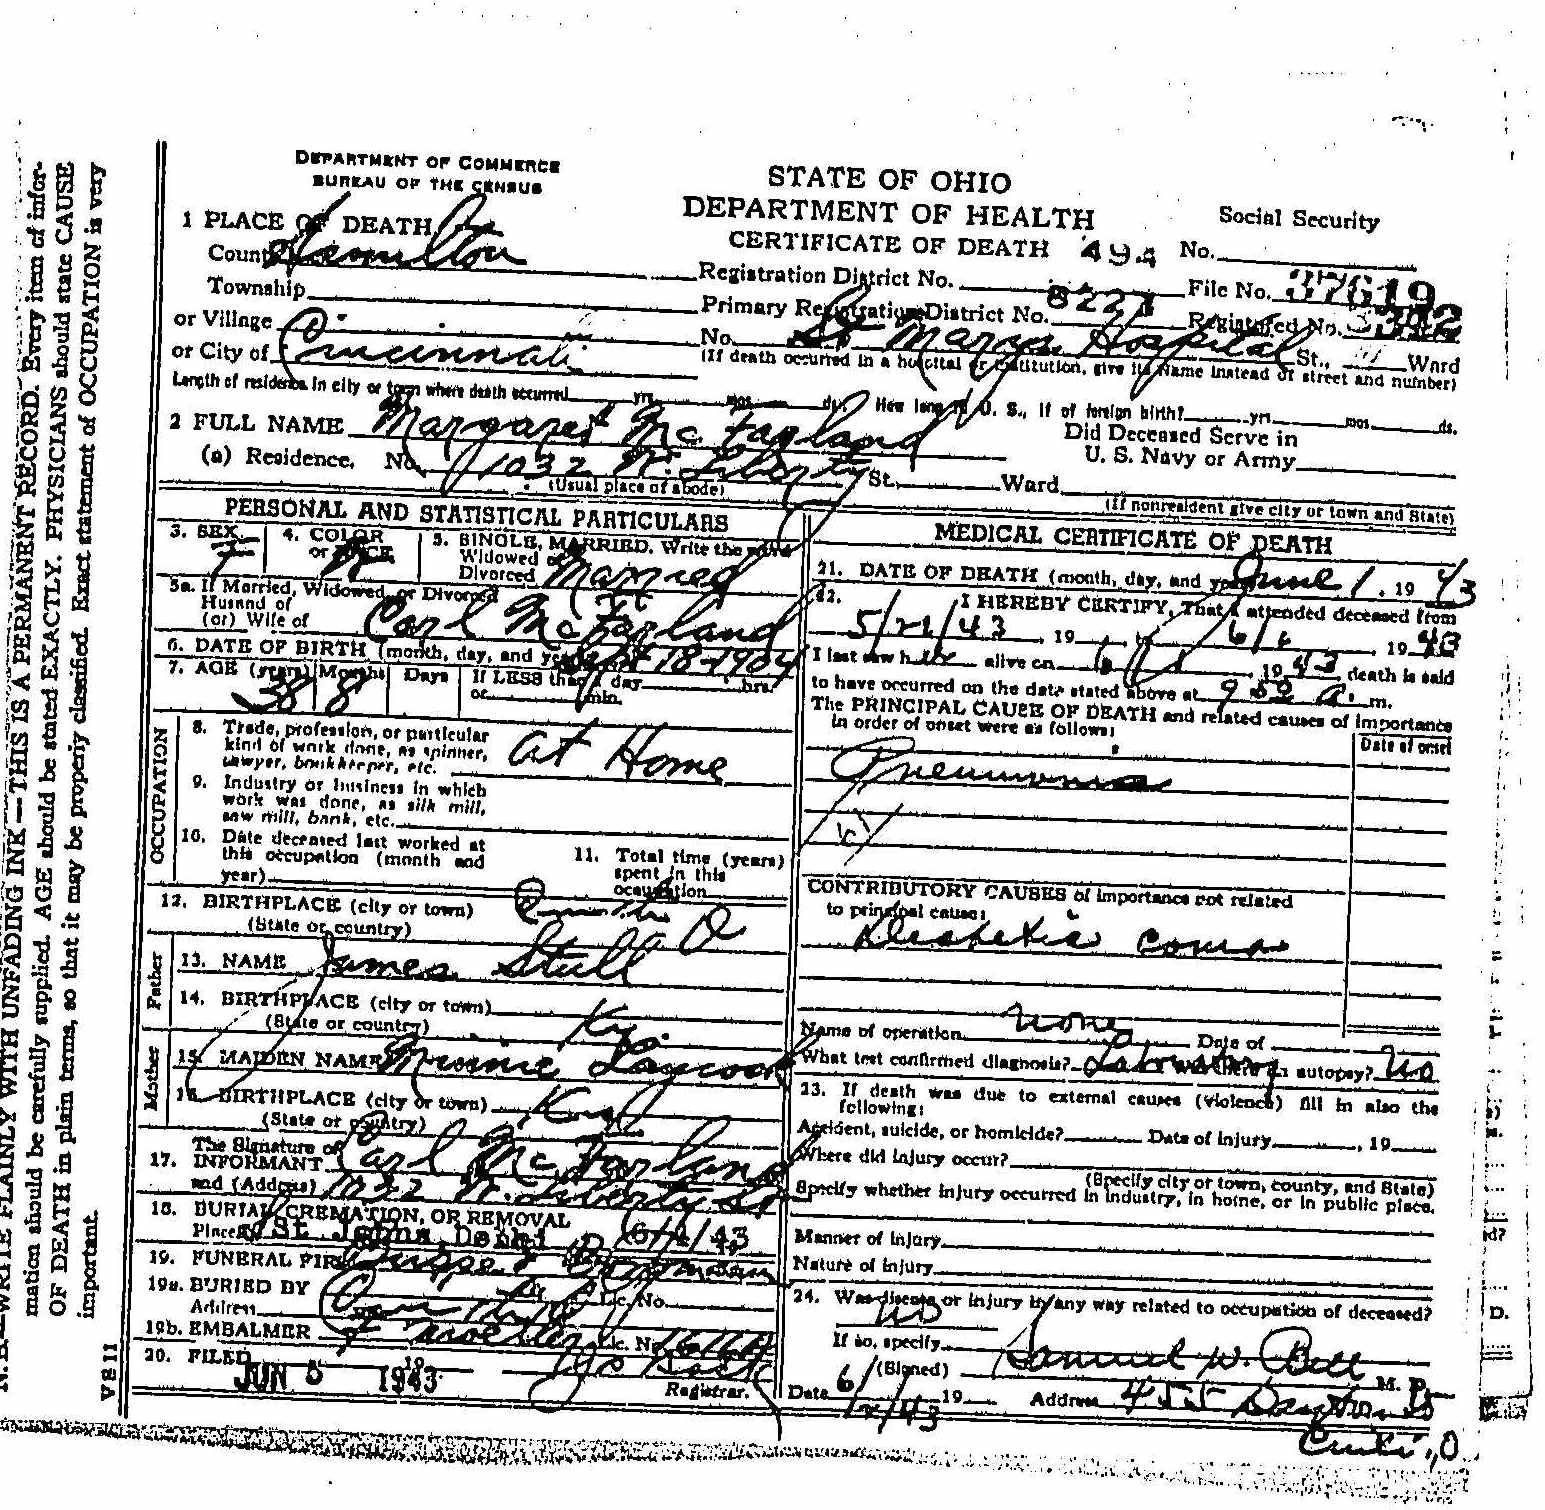 DEPARTMENT OF COMMERCE
BUREAU OF THE CENSUS
STATE OF OHIO
DEPARTMENT OF HEALTH
CERTIFICATE OF DEATH 494
Social Security
No.
1 PLACE OF DEATH
County Hamilton
Registration District No.
File No. 37619
Township
Primary Registration District No. 8227
Registered No.
or Village
No. St Marys Hospital St., Ward
or City of Cincinnati
(If death occurred in a hospital or institution, give its Name instead of street and number)
Length of residence in city or town where death occurred yrs. mos. ds. How long in U. S., if of foreign birth? yrs. mos. ds.
2 FULL NAME Margaret McFarland
Did Deceased Serve in
U. S. Navy or Army
(a) Residence, No. 1032 W. Liberty St., Ward
(Usual place of abode)
(If nonresident give city or town and State)
PERSONAL AND STATISTICAL PARTICULARS
3. SEX F
4. COLOR or RACE W
5. SINGLE, MARRIED, Write the word
Widowed or
Divorced Married
5a. If Married, Widowed, or Divorced
Husand of
(or) Wife of Carl McFarland
6. DATE OF BIRTH (month, day, and year) Sept 18-1904
7. AGE (years) 38 Months 8 Days If LESS than 1 day hrs.
or min.
OCCUPATION
8. Trade, profession, or particular
kind of work done, as spinner,
sawyer, bookkeeper, etc. at Home
9. Industry or business in which
work was done, as silk mill,
saw mill, bank, etc.
10. Date deceased last worked at
this occupation (month and
year)
11. Total time (years)
spent in this
occupation
12. BIRTHPLACE (city or town)
(State or country) O
Father
13. NAME James Stull
14. BIRTHPLACE (city or town)
(State or country) Ky.
Mother
15. MAIDEN NAME Minnie Laycock
16. BIRTHPLACE (city or town) Ky
(State or country)
The Signature of
17. INFORMANT Carl McFarland
and (Address) 1032 W. Liberty St
18. BURIAL, CREMATION, OR REMOVAL
Place St Johns, 6/4/43
19. FUNERAL FIRM
19a. BURIED BY Lic. No.
Address
19b. EMBALMER Lic. No.
20. FILED JUN 5 1943
Registrar.
MEDICAL CERTIFICATE OF DEATH
21. DATE OF DEATH (month, day, and year) June 1, 1943
22. I HEREBY CERTIFY, That I attended deceased from
5/21/43, 19 6/1 1943
I last saw her alive on 6/1 1943 death is said
to have occurred on the date stated above at 9 50 a. m.
The PRINCIPAL CAUSE OF DEATH and related causes of importance
in order of onset were as follows:
Date of onset
Pneumonia
CONTRIBUTORY CAUSES of importance not related
to principal cause:
Diabetic coma
Name of operation none Date of
What test confirmed diagnosis? Laboratory Was there an autopsy? no
23. If death was due to external causes (violence) fill in also the
following:
Accident, suicide, or homicide? Date of injury , 19
Where did injury occur?
(Specify city or town, county, and State)
Specify whether injury occurred in industry, in home, or in public place.
Manner of injury
Nature of injury
24. Was disease or injury in any way related to occupation of deceased?
no
If so, specify
(Signed) Samuel W. Bell M. D.
Date 6/2/43 19 Address 455 Dayton St
Cinti, O
N. B.—WRITE PLAINLY WITH UNFADING INK—THIS IS A PERMANENT RECORD. Every item of infor-
mation should be carefully supplied. AGE should be stated EXACTLY. PHYSICIANS should state CAUSE
OF DEATH in plain terms, so that it may be properly classified. Exact statement of OCCUPATION is very
important.
VS 11